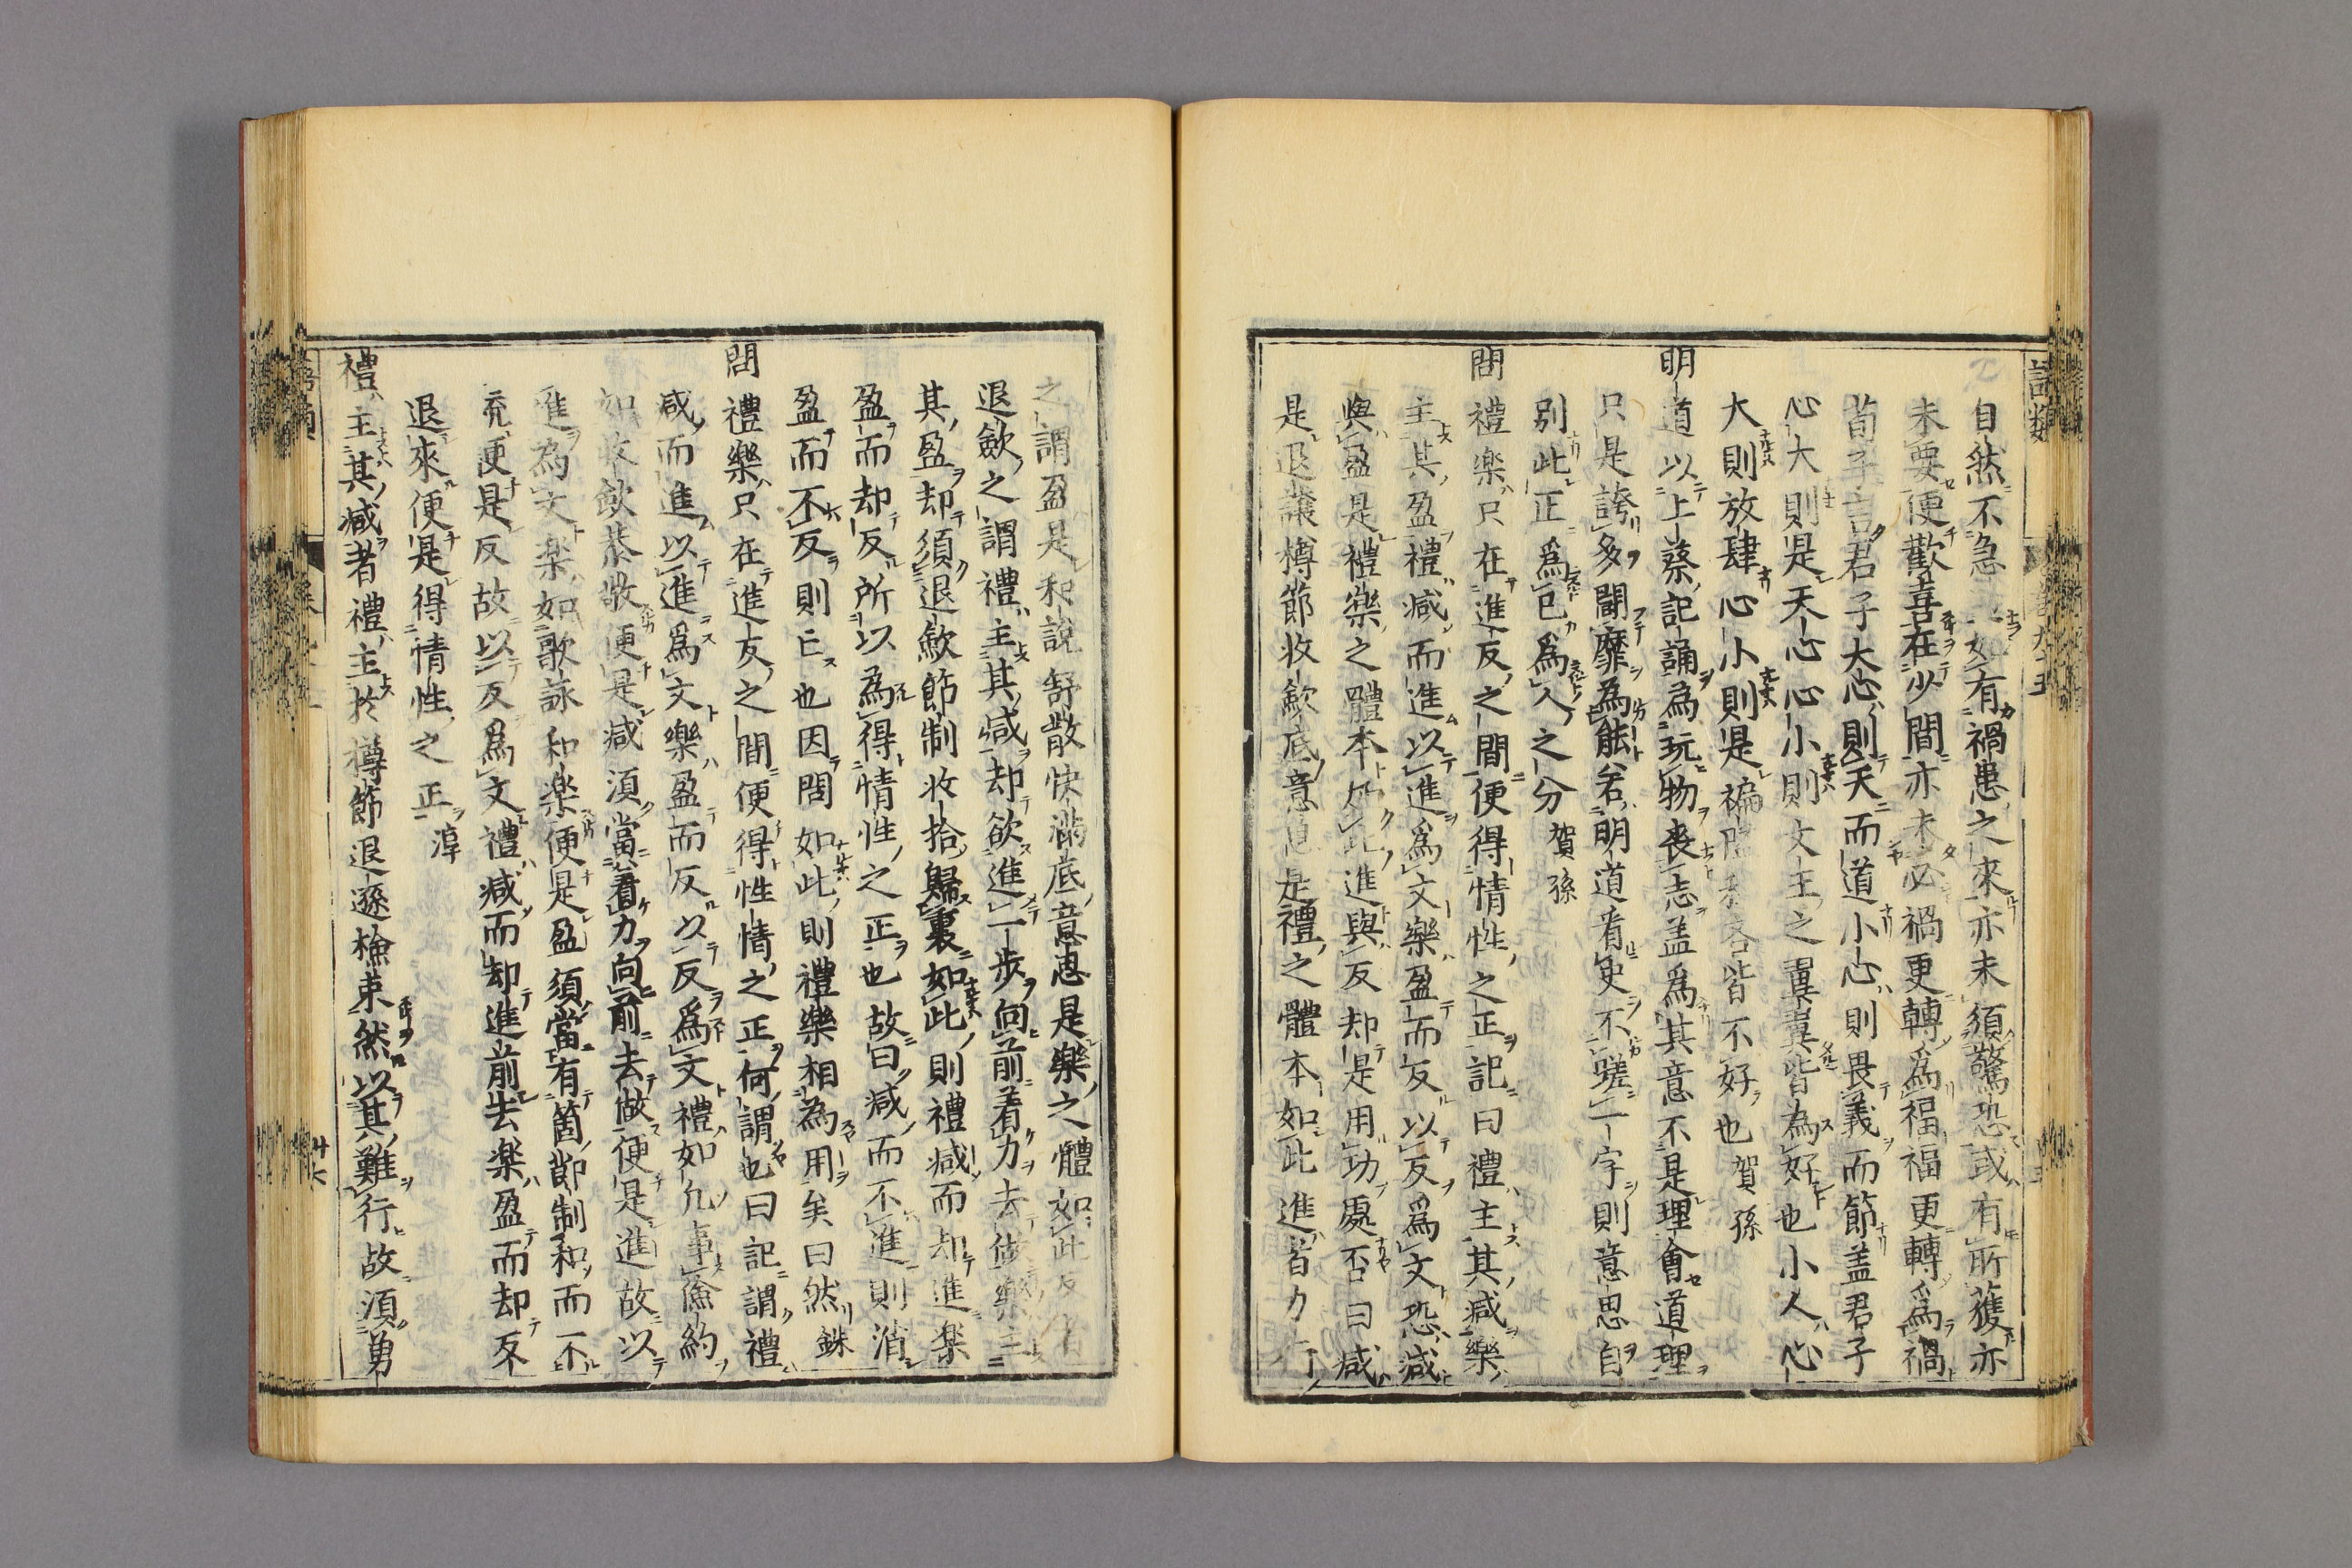 語類
自然不急如有禍患之來亦未須驚恐或有所獲亦
未要便歡喜在少間亦未必禍更轉為福福更轉為禍
荀子言君子大心則天而道小心則畏義而節盖君子
心大則是天心心小則文王之翼翼皆為好也小人心
大則放肆心小則是褊隘吝皆不好也賀孫
明道以上蔡記誦為玩物丧志盖為其意不是理會道理
只是誇多闘靡為能若明道看史不蹉一字則意思自
別此正為己為人之分賀孫
問禮樂只在進反之間便得情性之正記曰禮主其減樂
主其盈禮減而進以進為文樂盈而反以反為文恐減
與盈是禮樂之體本如此進與反却是用功處否曰減
是退讓樽節收歛底意思是禮之體本如此進者力行
之謂盈是和說舒散快滿底意思是樂之體如此反者
退歛之謂禮主其減却欲進一步向前着力去做樂主
其盈却須退歛節制收拾歸裏如此則禮減而却進樂
盈而却反所以為得情性之正也故曰減而不進則消
盈而不反則亡也因問如此則禮樂相為用矣曰然銖
問禮樂只在進反之間便得性情之正何謂也曰記謂禮
減而進以進為文樂盈而反以反為文禮如凡事儉約
如收歛恭敬便是減須當着力向前去做便是進故以
進為文樂如歌詠和樂便是盈須當有箇節制和而不
充便是反故以反為文禮減而却進前去樂盈而却反
退來便是得情性之正淳
禮主其減者禮主於樽節退遜檢束然以其難行故須勇
廿六